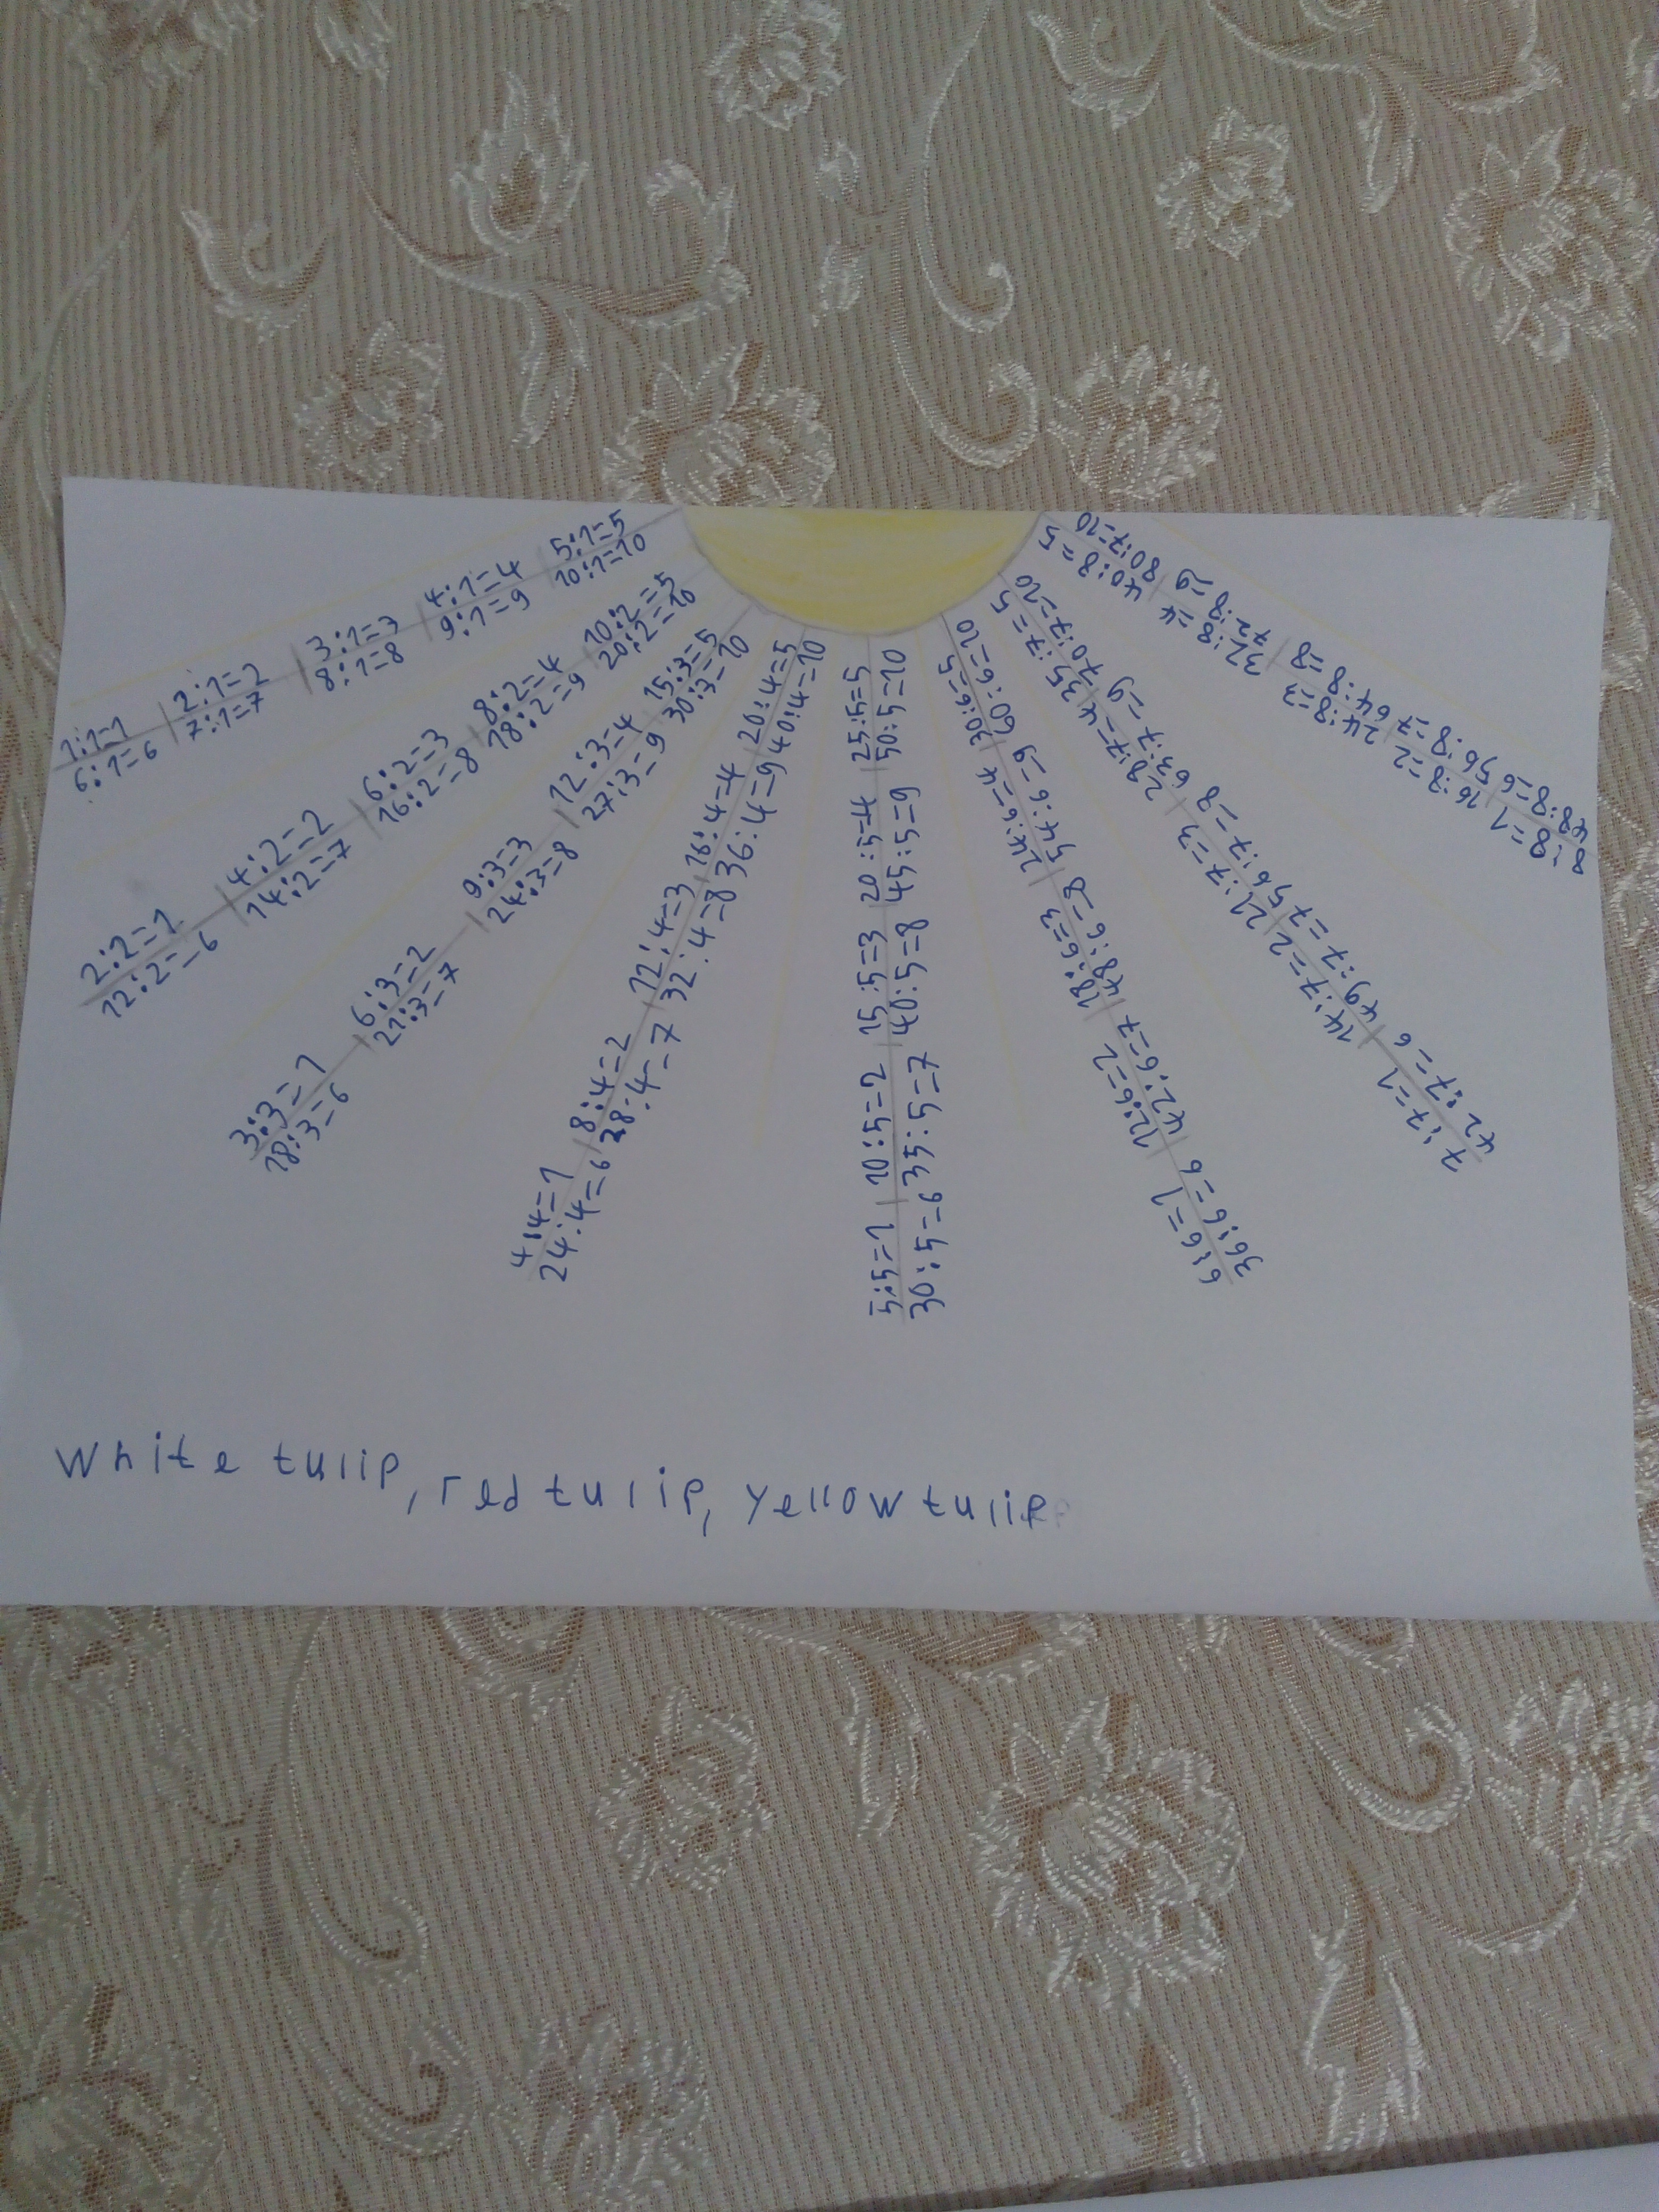 1:1=1 | 2:1=2 | 3:1=3 | 4:1=4 | 5:1=5
6:1=6 7:1=7 8:1=8 9:1=9 10:1=10
2:2=1 | 4:2=2 | 6:2=3 | 8:2=4 | 10:2=5
12:2=6 14:2=7 16:2=8 18:2=9 20:2=10
3:3=1 | 6:3=2 | 9:3=3 | 12:3=4 15:3=5
18:3=6 21:3=7 24:3=8 27:3=9 30:3=10
4:4=1 | 8:4=2 | 12:4=3 | 16:4=4 | 20:4=5
24:4=6 28:4=7 32:4=8 36:4=9 40:4=10
5:5=1 | 10:5=2 | 15:5=3 | 20:5=4 | 25:5=5
30:5=6 35:5=7 40:5=8 45:5=9 50:5=10
30:6=5 | 24:6=4 | 18:6=3 | 12:6=2 | 6:6=1
60:6=10 54:6=9 48:6=8 42:6=7 36:6=6
35:7=5 28:7=4 | 21:7=3 14:7=2 | 7:7=1
70:7=10 63:7=9 56:7=8 49:7=7 42:7=6
40:8=5 | 32:8=4 | 24:8=3 | 16:8=2 | 8:8=1
80:7=10 72:8=9 64:8=8 56:8=7 48:8=6
White tulip, red tulip, yellow tulip